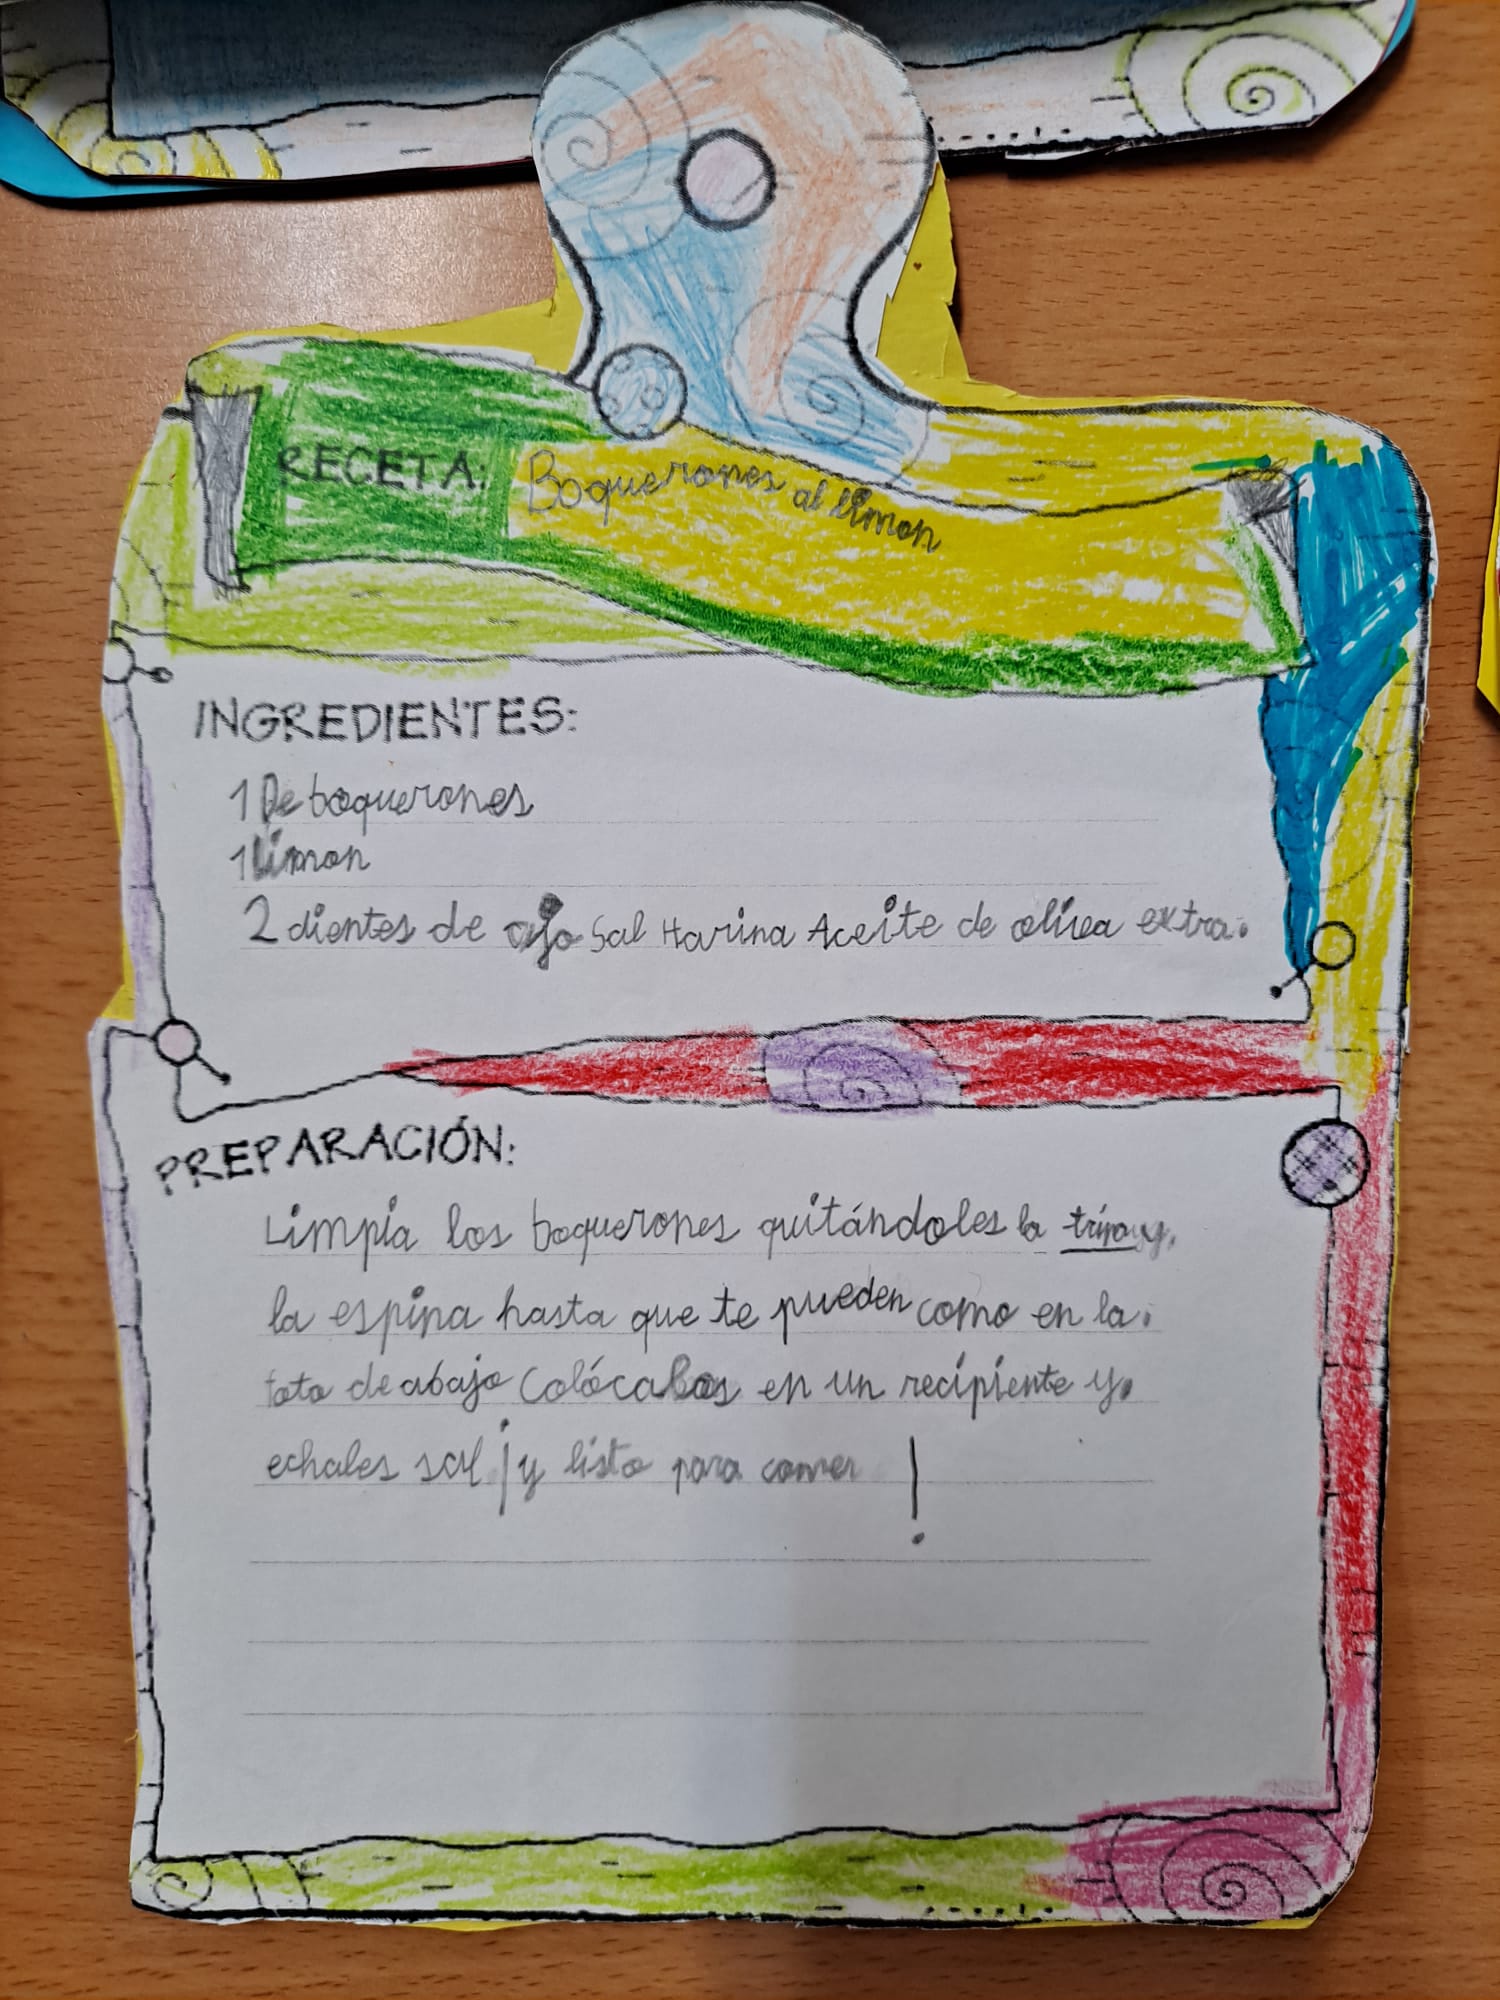 RECETA: Boquerones al limon
INGREDIENTES:
1 De boquerones
1 limon
2 dientes de ajo Sal Harina Aceite de oliva extra.
PREPARACIÓN:
Limpia los boquerones quitándoles la tripa y,
la espina hasta que te pueden como en la.
foto de abajo Colócalos en un recipiente y.
echales sal ¡y listo para comer !